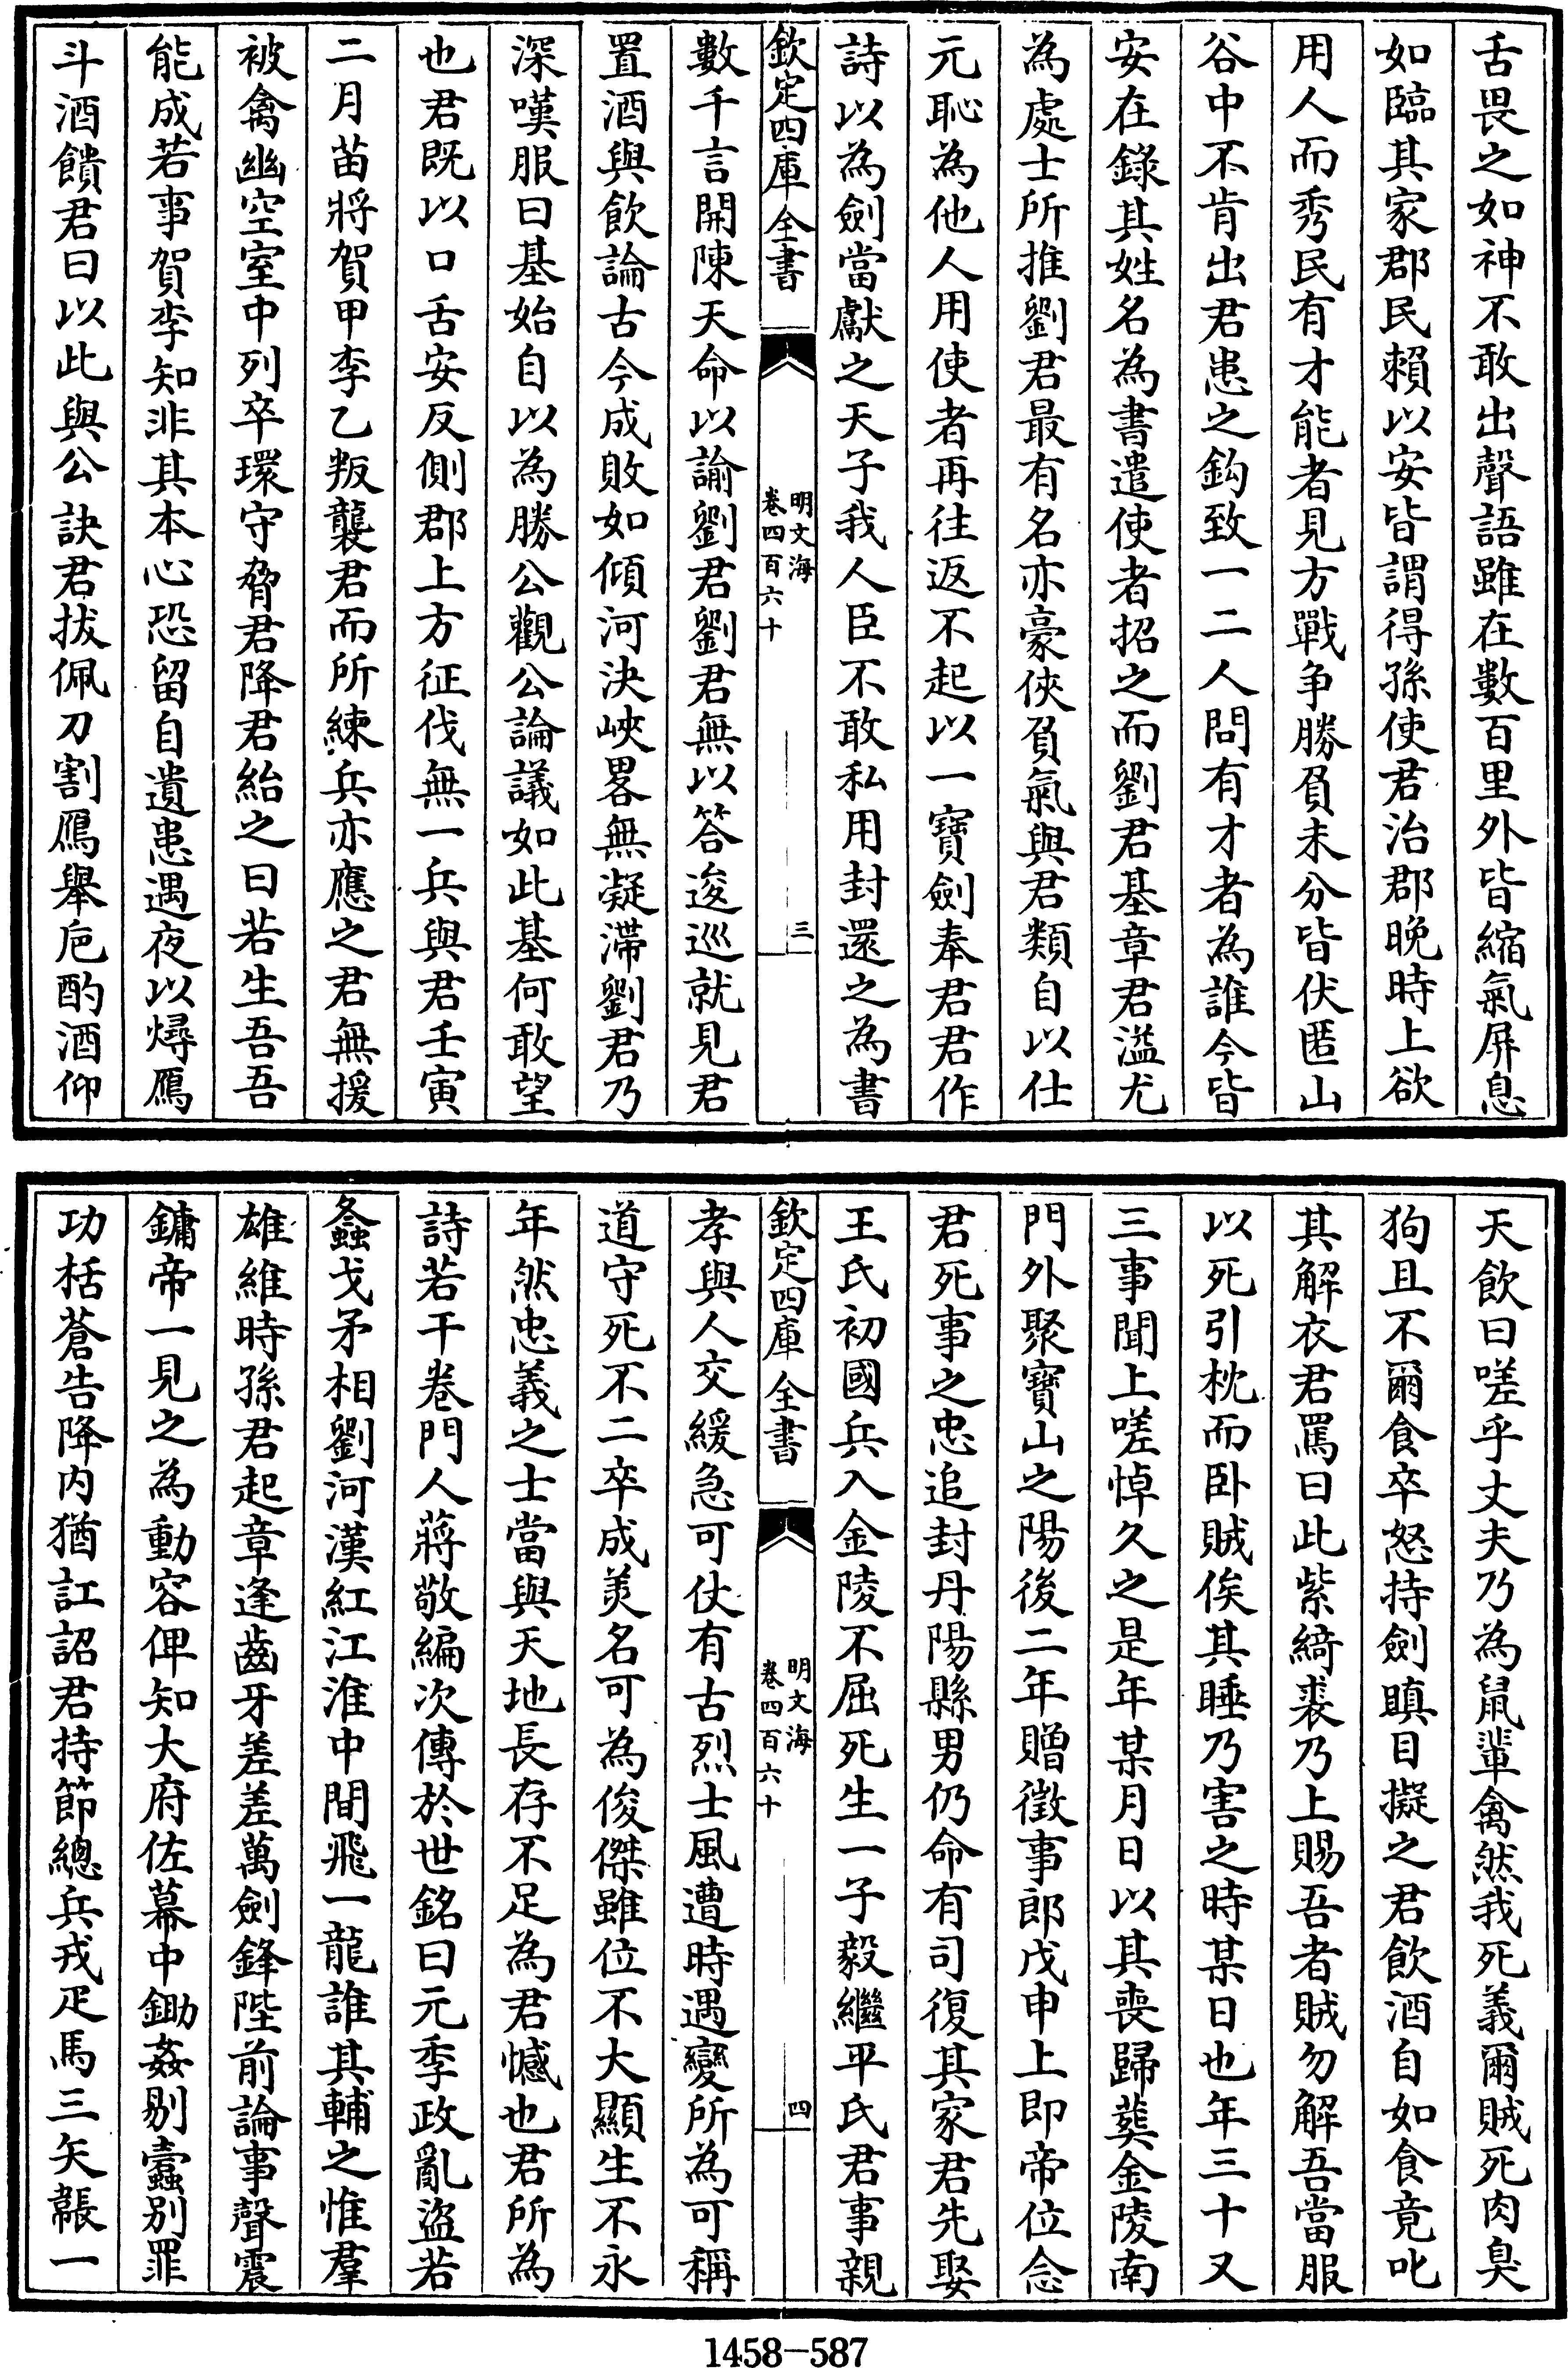 舌畏之如神不敢出聲語雖在數百里外皆縮氣屏息
如臨其家郡民賴以安皆謂得孫使君治郡晚時上欲
用人而秀民有才能者見方戰争勝負未分皆伏匿山
谷中不肯出君患之鈎致一二人問有才者為誰今皆
安在錄其姓名為書遣使者招之而劉君基章君溢尤
為處士所推劉君最有名亦豪俠負氣與君類自以仕
元恥為他人用使者再往返不起以一寶劍奉君君作
詩以為劍當獻之天子我人臣不敢私用封還之為書
欽定四庫全書
明文海
卷四百六十
三
數千言開陳天命以諭劉君劉君無以答逡巡就見君
置酒與飲論古今成敗如傾河決峽畧無凝滯劉君乃
深嘆服曰基始自以為勝公觀公論議如此基何敢望
也君既以口舌安反側郡上方征伐無一兵與君壬寅
二月苗將賀甲李乙叛襲君而所練兵亦應之君無援
被禽幽空室中列卒環守脅君降君紿之曰若生吾吾
能成若事賀李知非其本心恐留自遺患遇夜以燖鴈
斗酒饋君曰以此與公訣君拔佩刀割鴈舉巵酌酒仰
天飲曰嗟乎丈夫乃為鼠輩禽然我死義爾賊死肉臭
狗且不爾食卒怒持劍瞋目擬之君飲酒自如食竟叱
其解衣君罵曰此紫綺裘乃上賜吾者賊勿解吾當服
以死引枕而卧賊俟其睡乃害之時某日也年三十又
三事聞上嗟悼久之是年某月日以其喪歸葬金陵南
門外聚寶山之陽後二年贈徵事郎戊申上即帝位念
君死事之忠追封丹陽縣男仍命有司復其家君先娶
王氏初國兵入金陵不屈死生一子毅繼平氏君事親
欽定四庫全書
明文海
卷四百六十
四
孝與人交緩急可仗有古烈士風遭時遇變所為可稱
道守死不二卒成美名可為俊傑雖位不大顯生不永
年然忠義之士當與天地長存不足為君憾也君所為
詩若干卷門人蔣敬編次傳於世銘曰元季政亂盜若
螽戈矛相劉河漢紅江淮中間飛一龍誰其輔之惟羣
雄維時孫君起章逢齒牙差差萬劍鋒陛前論事聲震
鏞帝一見之為動容俾知大府佐幕中鋤姦剔蠹别罪
功栝蒼告降内猶訌詔君持節總兵戎疋馬三矢韔一
1458-587